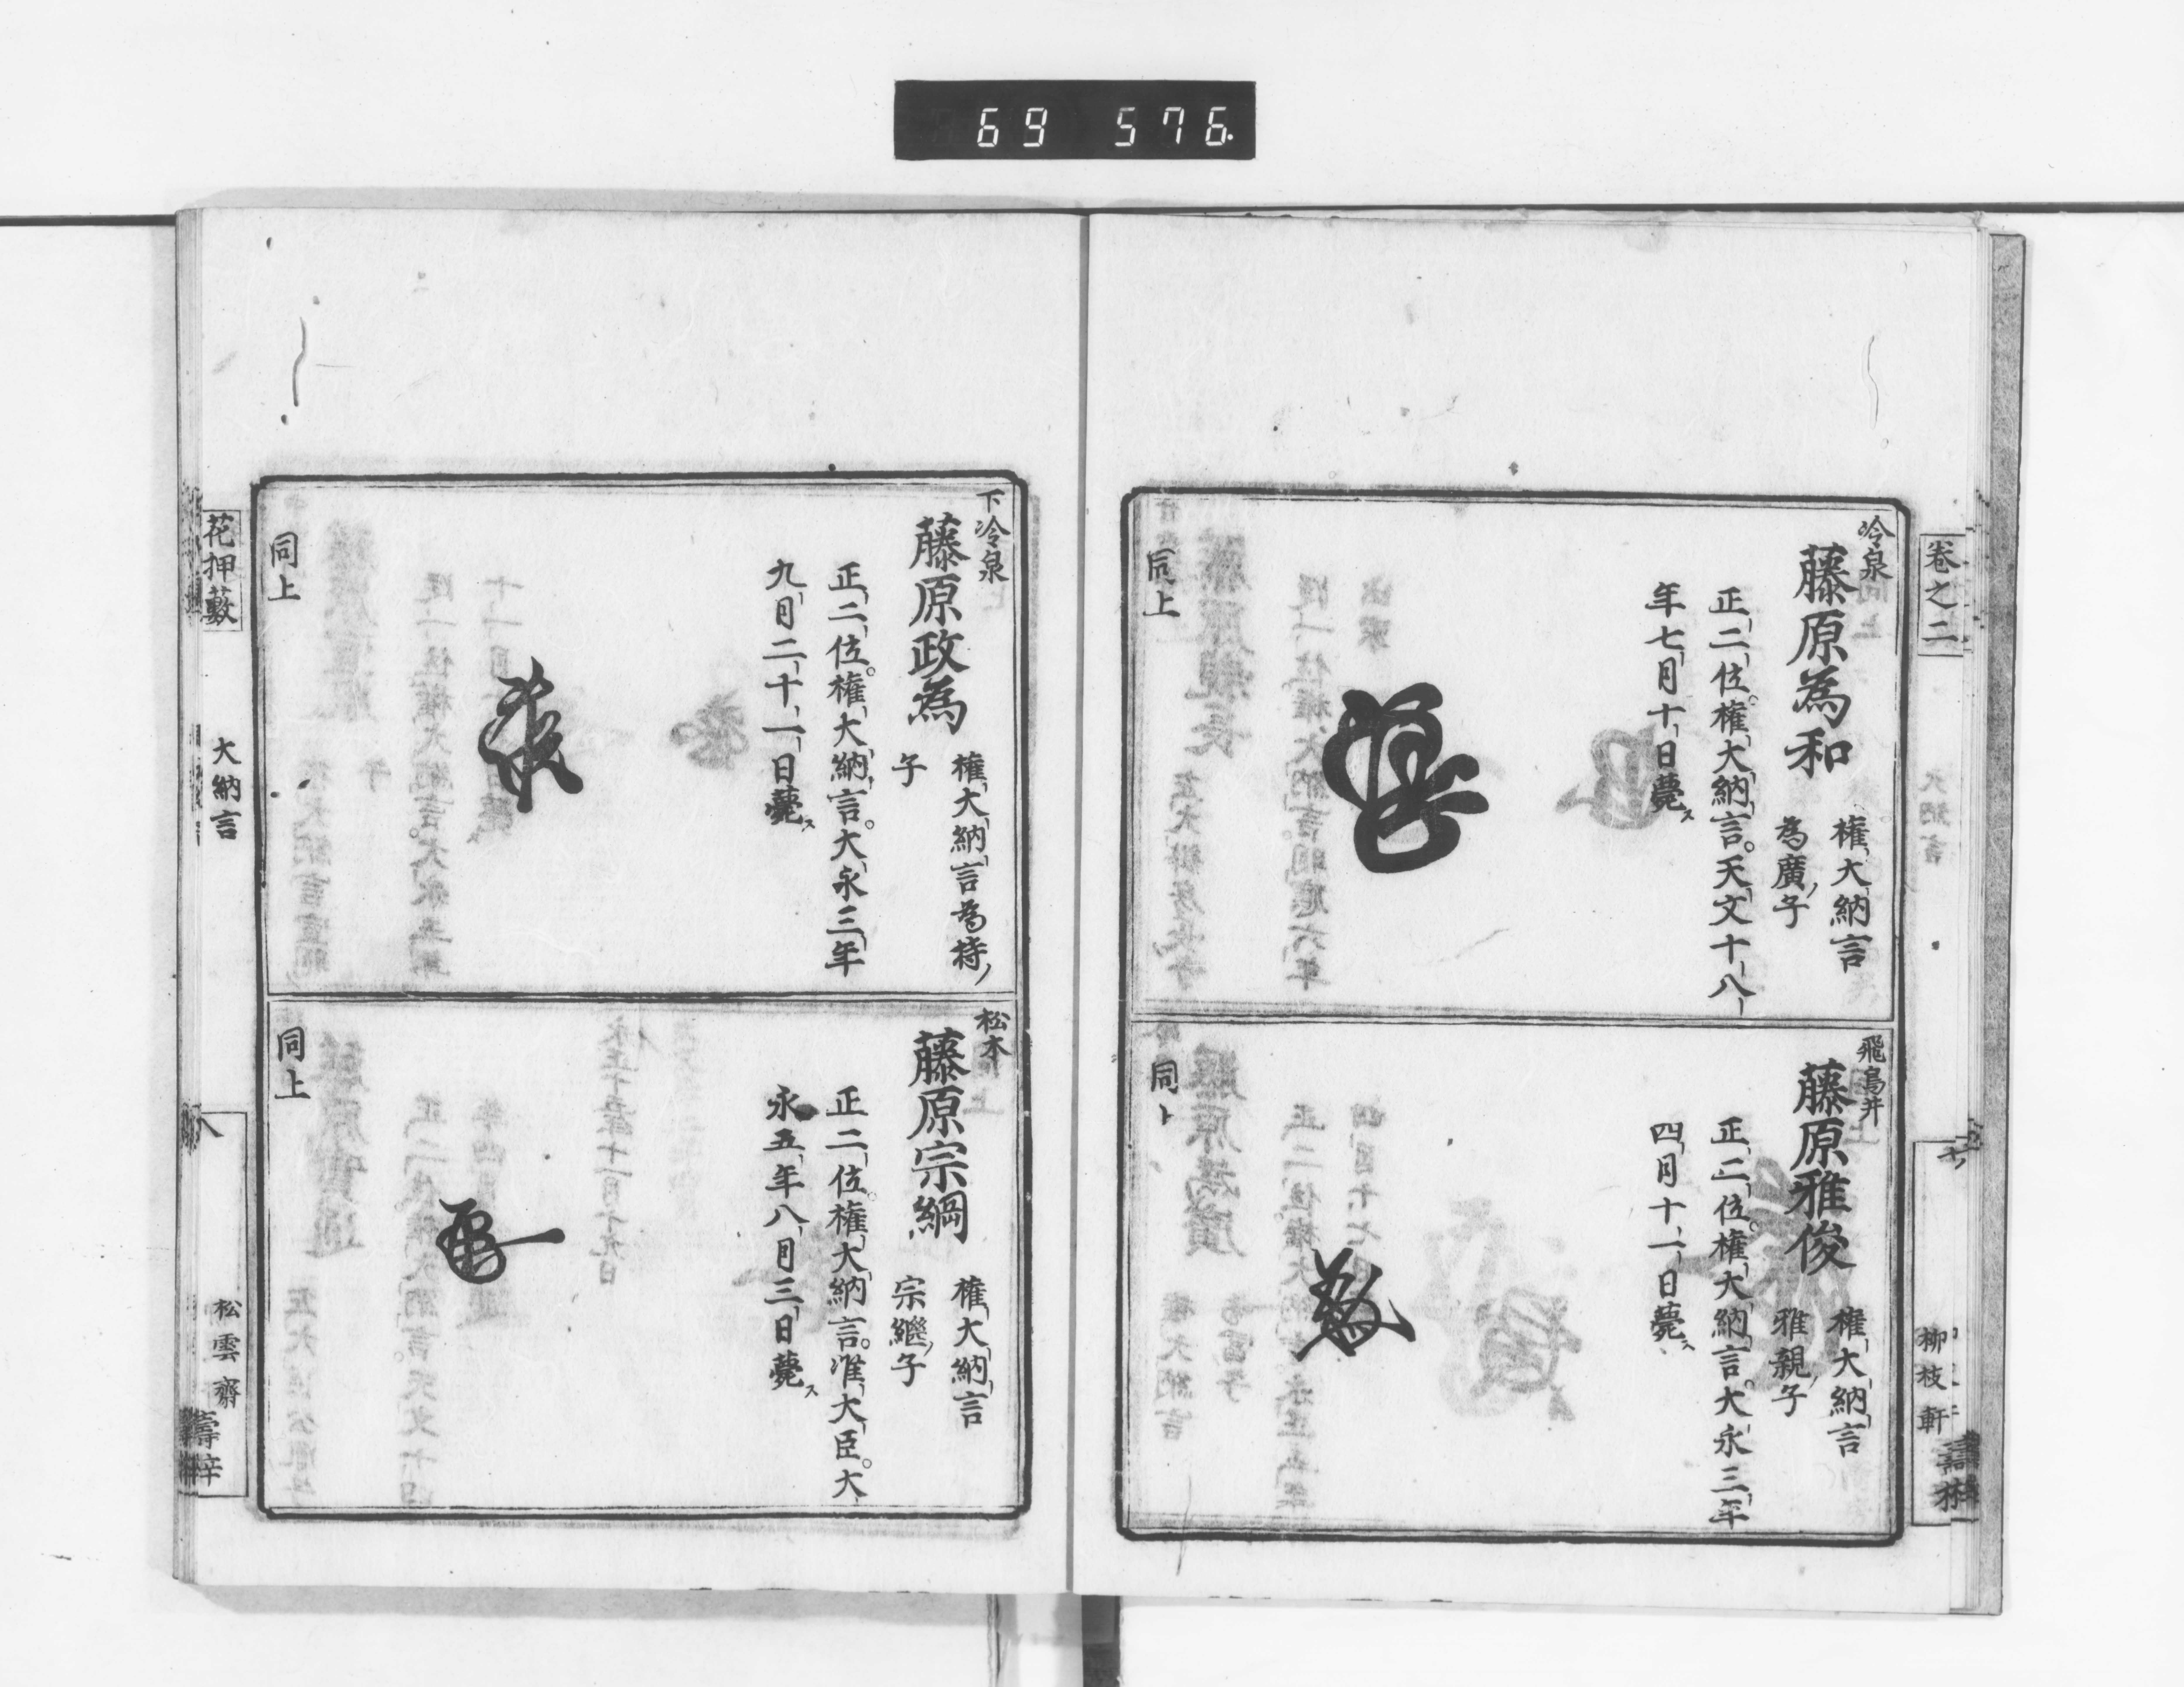 69 576.
巻之二
柳枝軒
冷泉
藤原為和
権大納言
為廣子
正二位。権大納言。天文十八
年七月十日薨ス
同上
飛鳥井
藤原雅俊
権大納言
雅親子
正二位。権大納言。大永三年
四月十一日薨ス
同上
下冷泉
藤原政為
権大納言為持
子
正二位。権大納言。大永三年
九月二十一日薨ス
同上
松本
藤原宗綱
権大納言
宗継子
正二位。権大納言。准大臣。大
永五年八月三日薨ス
同上
花押藪
大納言
八
松雲齋